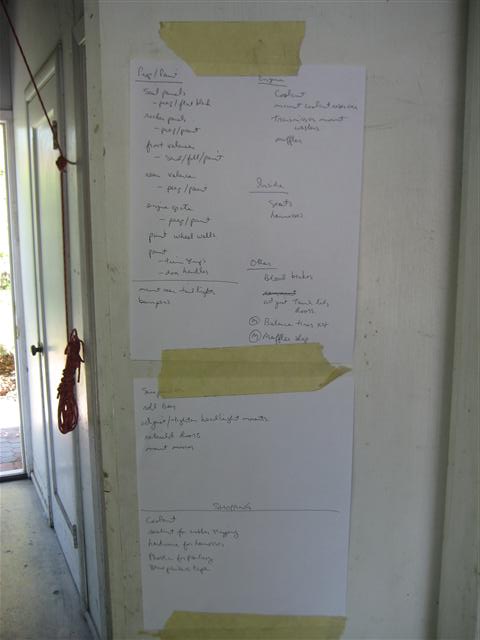 Prep/Paint
sail panels
- prep/flat black
rocker panels
- prep/paint
front valence
- sand/fill/paint
rear valence
- prep/paint
engine grate
- prep/paint
paint wheel wells
paint
- door handles
mount rear tail lights
bumpers
Engine
Coolant
mount coolant reservoir
Transmission mount
washers
muffler
Inside
Seats
harnesses
Other
Bleed brakes
adjust Trunk lids
doors
Balance tires
Muffler shop
roll bar
adjust/tighten headlight mounts
rebuild doors
mount mirror
Shopping
Coolant
sealant for rubber
hardware for harnesses
Plastic for
Blue painters tape